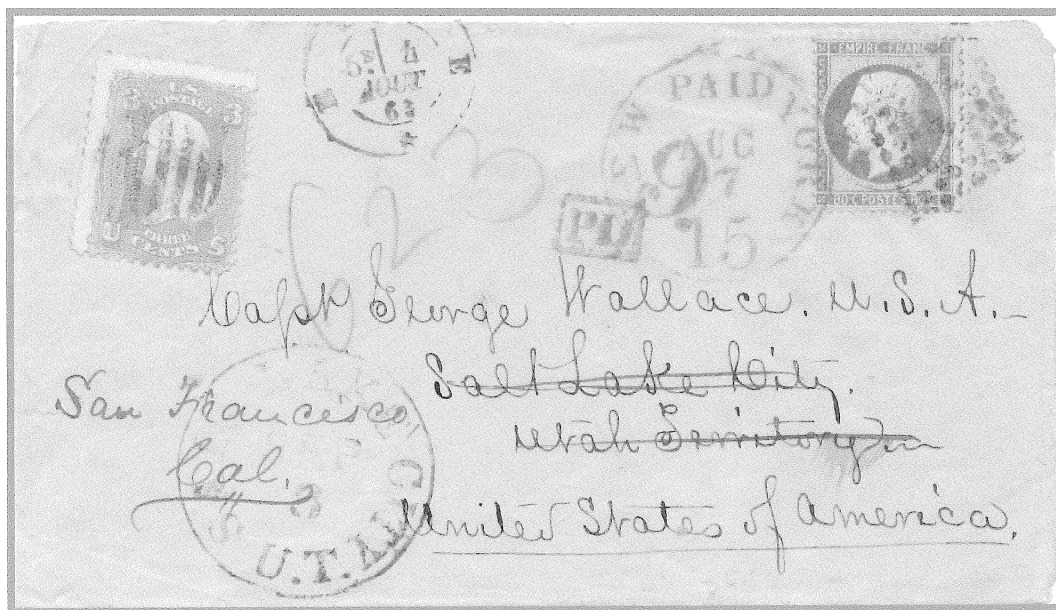 U.S.
POSTAGE
3 3
THREE
U CENTS S
5E 4
AOUT
63
E
NEW PAID YORK
AUG
7
15
PD
EMPIRE FRANC
80 C POSTES 80 C
23
Capt George Wallace. U. S. A.
Salt Lake City.
Utah Territory
San Francisco
Cal.
United States of America.
SALT LAKE CITY
U.T.